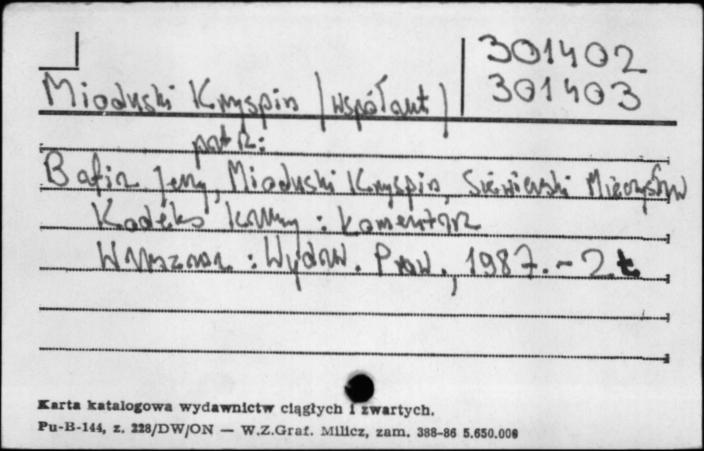 301402
301403
Mioduski Kryspin /współaut/
patrz:
Bafia Jerzy, Mioduski Kryspin, Siewierski Mieczysław
Kodeks karny : komentarz
Warszawa : Wydaw. Praw., 1987. - 2 t.
Karta katalogowa wydawnictw ciągłych i zwartych.
Pu-B-144, z. 228/DW/ON — W.Z.Graf. Milicz, zam. 388-86 5.650.000